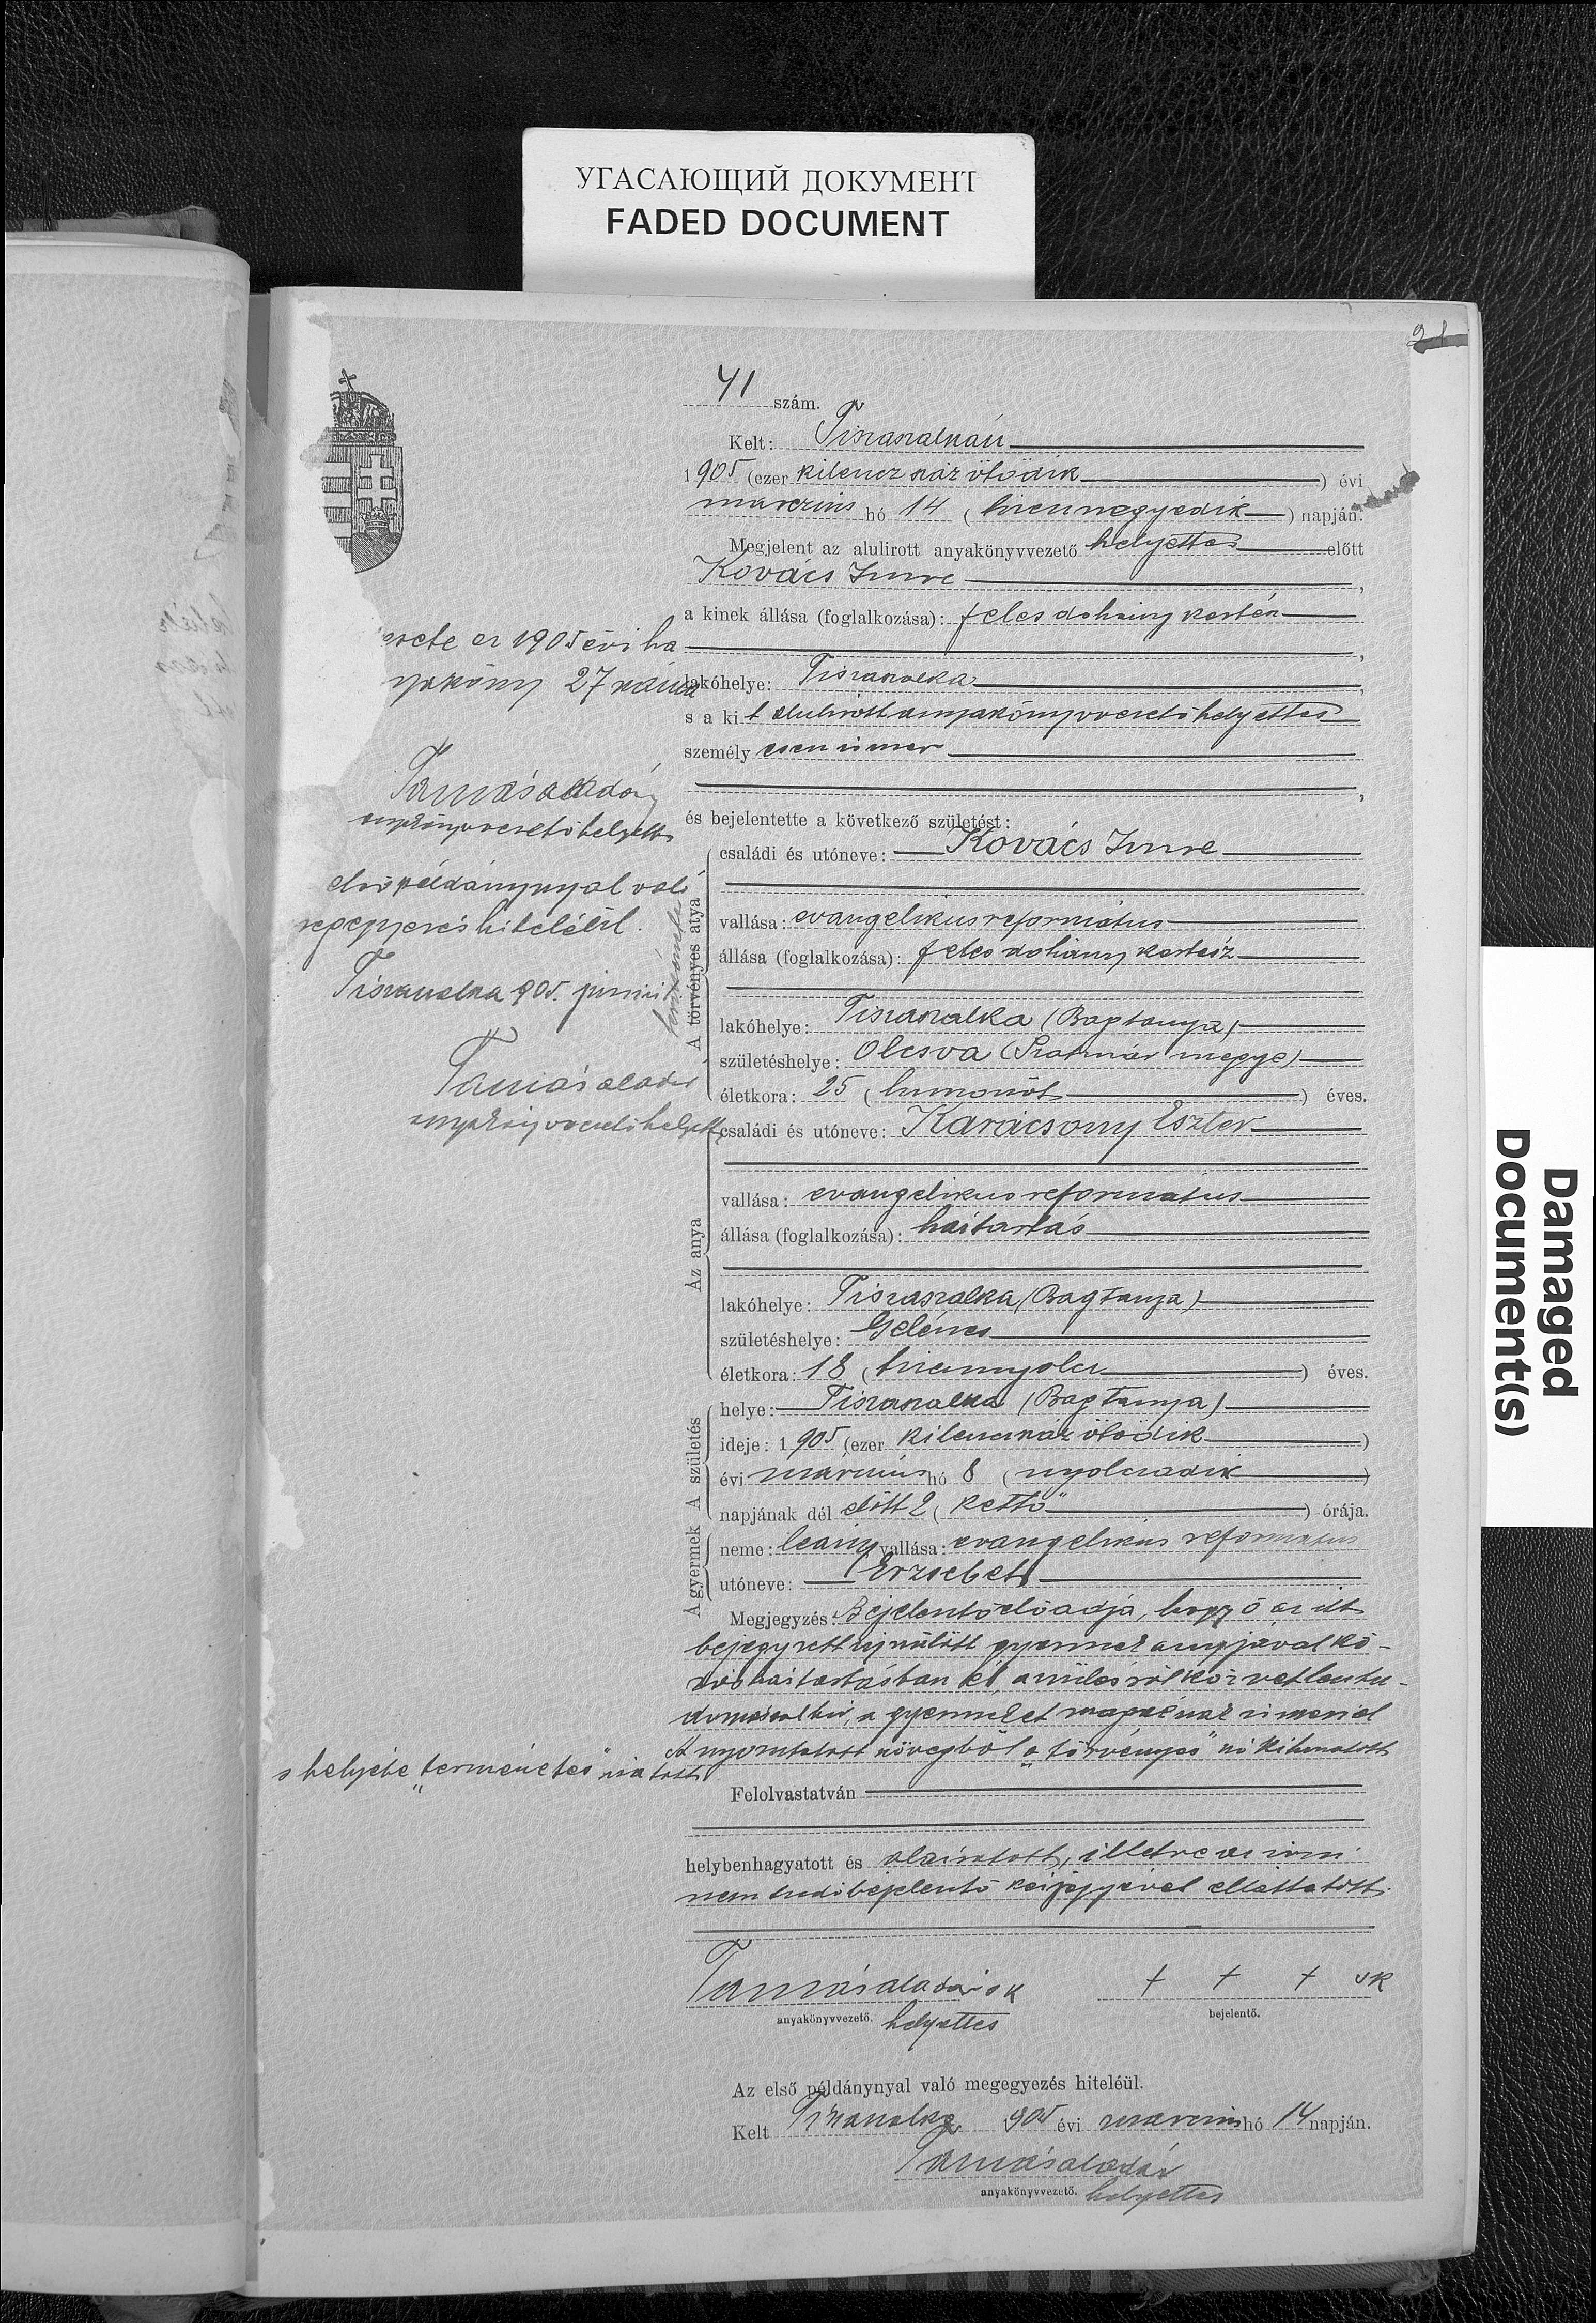 УГАСАЮЩИЙ ДОКУМЕНТ
FADED DOCUMENT
21
41 szám.
Kelt: Tiszaszalkán
1905 (ezer kilenczszáz ötödik) évi
marczius hó 14 (tizennegyedik) napján.
Megjelent az alulirott anyakönyvvezető helyettes előtt
Kovács Imre,
a kinek állása (foglalkozása): feles dohány kertész
lakóhelye: Tiszaszalka,
s a kit alulirott anyakönyvvezető helyettes
személyesen ismer
és bejelentette a következő születést:
A törvényes atya
természetes
családi és utóneve: Kovács Imre
vallása: evangelikus református
állása (foglalkozása): feles dohány kertész
lakóhelye: Tiszaszalka (Bagtanya)
születéshelye: Olcsva (Szatmár megye)
életkora: 25 (huszonöt) éves.
Az anya
családi és utóneve: Karácsony Eszter
vallása: evangelikus református
állása (foglalkozása): háztartás
lakóhelye: Tiszaszalka (Bagtanya)
születéshelye: Gelénes
életkora: 18 (tizennyolcz) éves.
A születés
helye: Tiszaszalka (Bagtanya)
ideje: 1905 (ezer kilenczszáz ötödik)
évi márczius hó 8 (nyolczadik)
napjának dél előtt 2 (kettő) órája.
A gyermek
neme: leány vallása: evangelikus református
utóneve: Erzsébet
Megjegyzés: Bejelentő előadja, hogy ő az itt
bejegyzett ujszülött gyermek anyjával kö-
zös háztartásban él, a szülésről közvetlen tu-
domással bir, a gyermeket magáénak ismeri el
A nyomtatott szövegből "a törvényes" szó kihuzatott
s helyébe "természetes" iratott
Felolvastatván
helybenhagyatott és aláiratott, illetve az irni
nem tudó bejelentő kézjegyével elláttatott.
Tamás Aladár sk
anyakönyvvezető. helyettes
+ + + sk
bejelentő.
Az első példánynyal való megegyezés hiteléül.
Kelt Tiszaszalka 1905 évi marczius hó 14 napján.
Tamás Aladár
anyakönyvvezető. helyettes
az 1905 évi ha
27 száma
Tamás Aladár
anyakönyvvezető helyettes
első példánynyal való
megegyezés hiteléül.
Tiszaszalka 905.
Tamás Aladár
anyakönyvvezető helyettes
Damaged
Document(s)